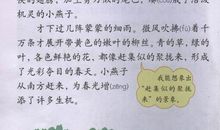 机灵的小燕子。
才下过几阵蒙蒙的细雨。微风吹拂(fú)着千
万条才展开带黄色的嫩叶的柳丝。青的草，绿的
叶，各色鲜艳的花，都像赶集似的聚拢来，形成
了光彩夺目的春天。小燕子
从南方赶来，为春光增(zēng)
添了许多生机。
我能想象出
“赶集似的聚拢
来”的景象。